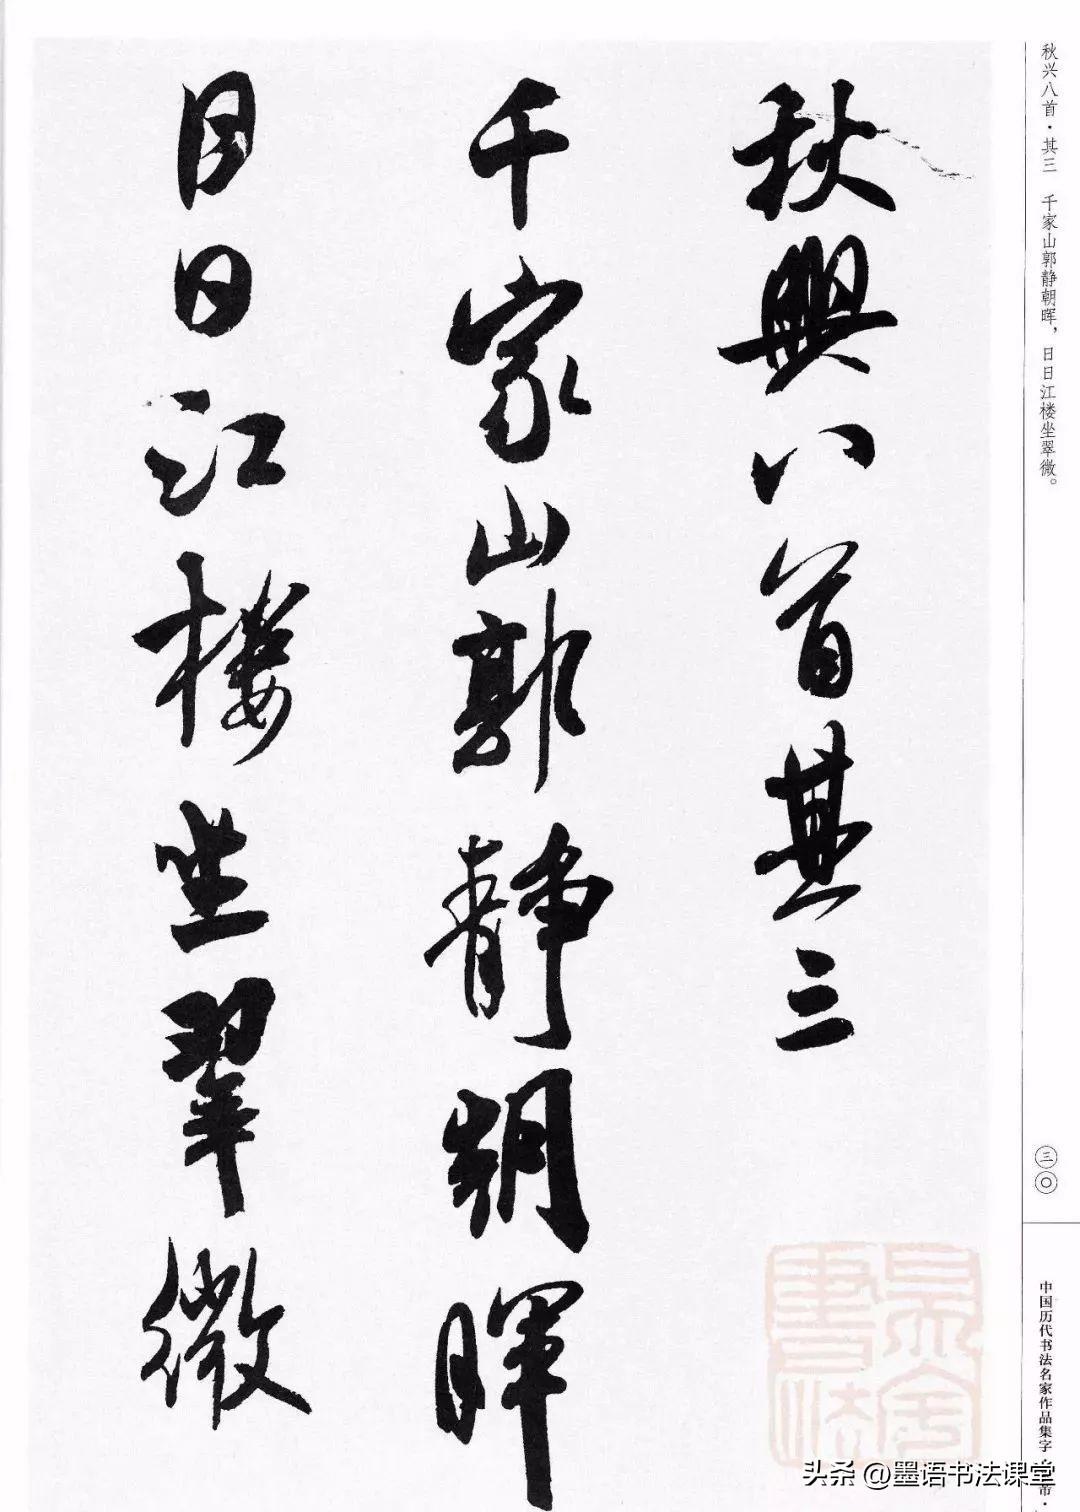 秋兴八首·其三　千家山郭静朝晖，日日江楼坐翠微。
三〇
中国历代书法名家作品集字
秋興八首其三
千家山郭靜朝暉
日日江樓坐翠微
头条 @墨语书法课堂